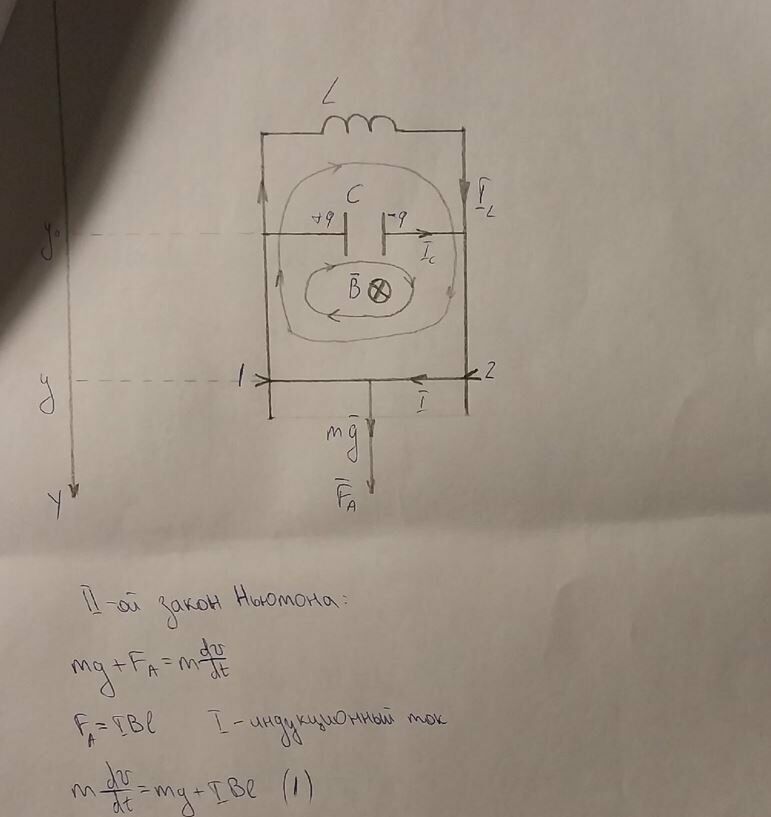 L
I_L
C
+q -q
y₀
I_c
B̄
1 2
y
I
mḡ
Y
F̄_A
II-ой закон Ньютона:
mg + F_A = m dv/dt
F_A = IBl I - индукционный ток
m dv/dt = mg + IBl (1)